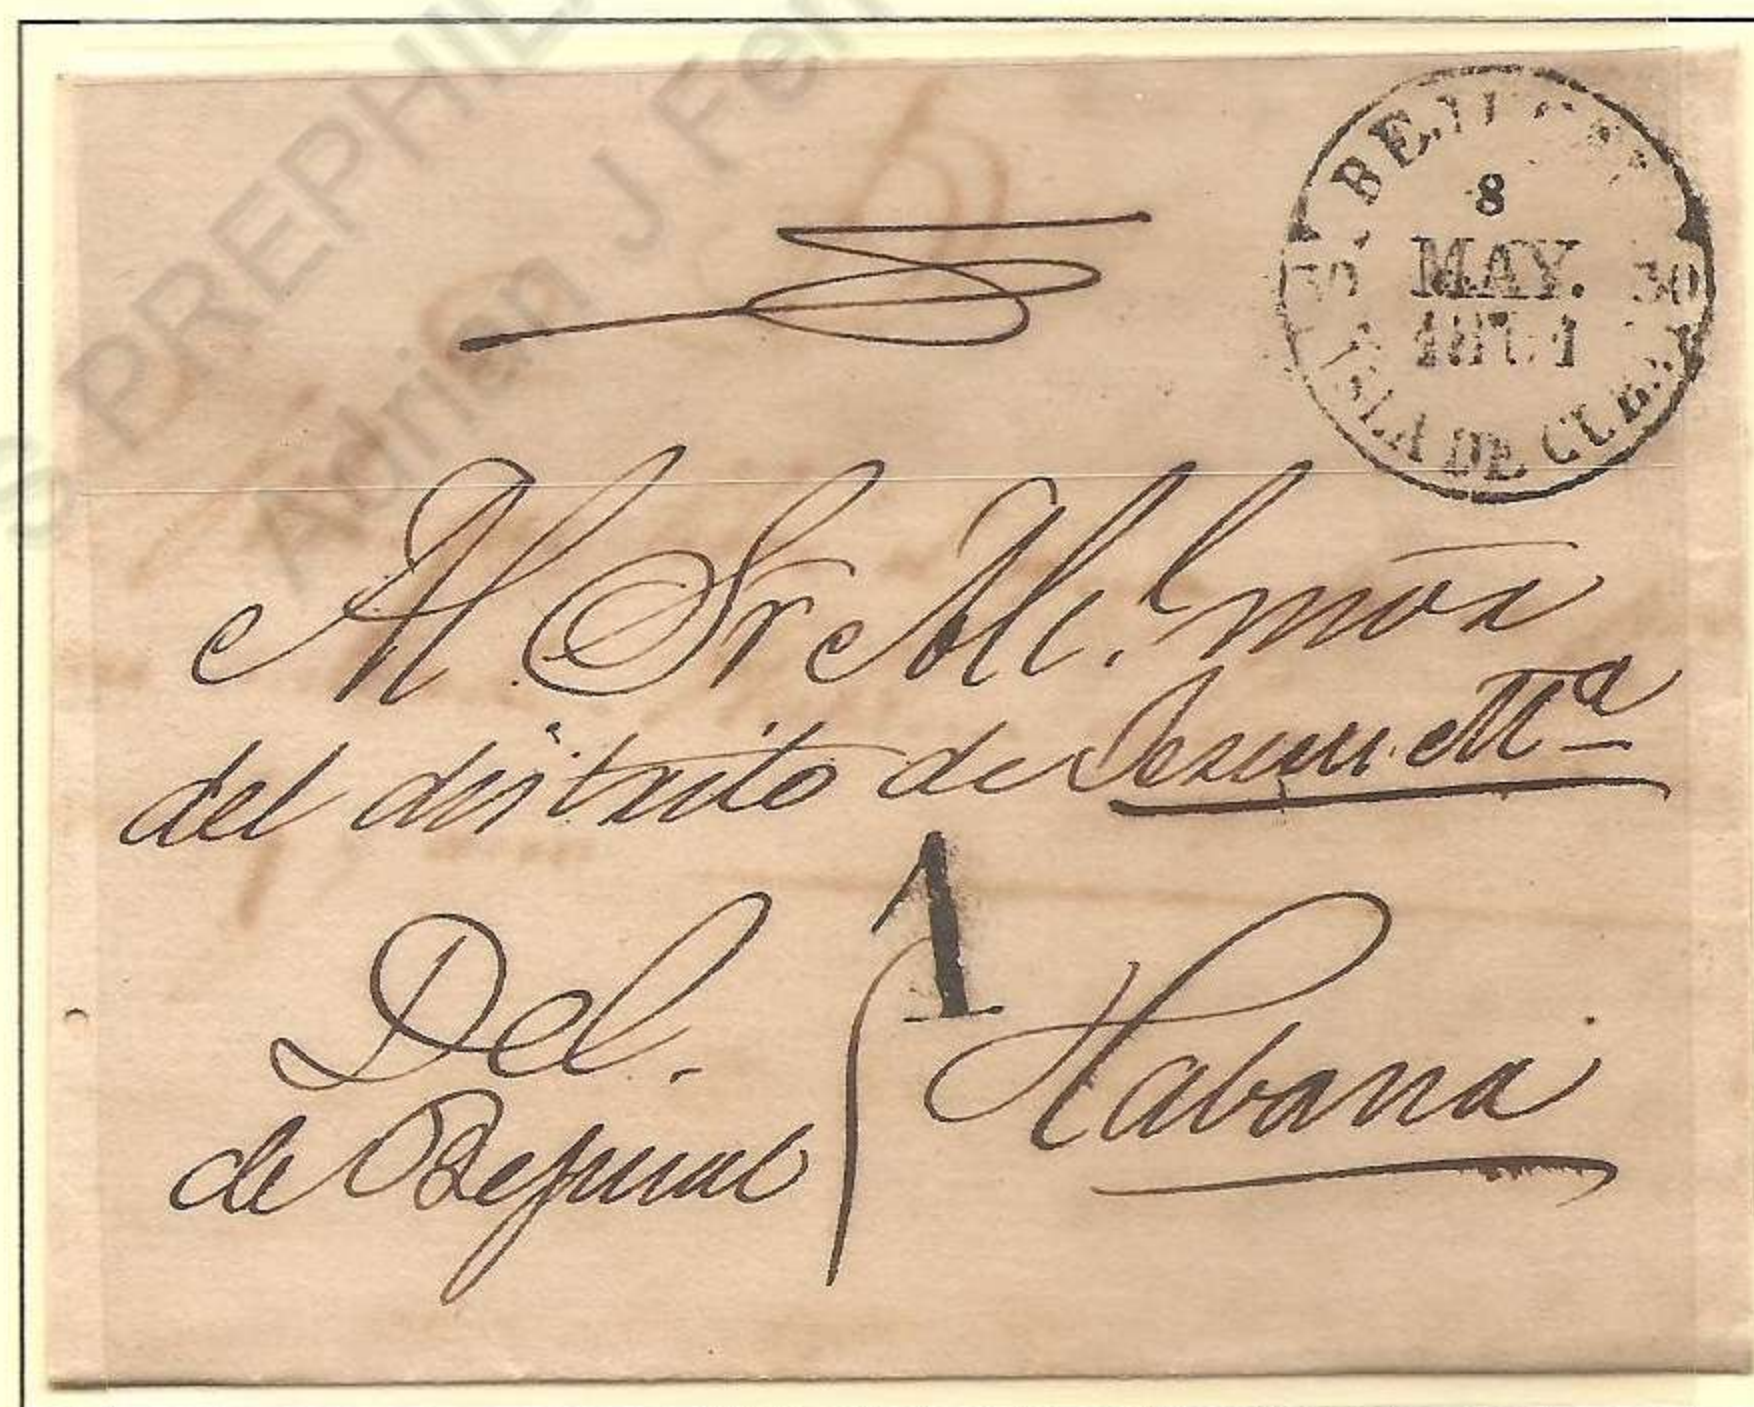 S PREPHIL
Adrien J Fell
8
MAY.
30
ISLA DE CUBA
Al Sr Alc.l
del distrito de Jesus Ma
1
Del.
de Bejucal
Habana